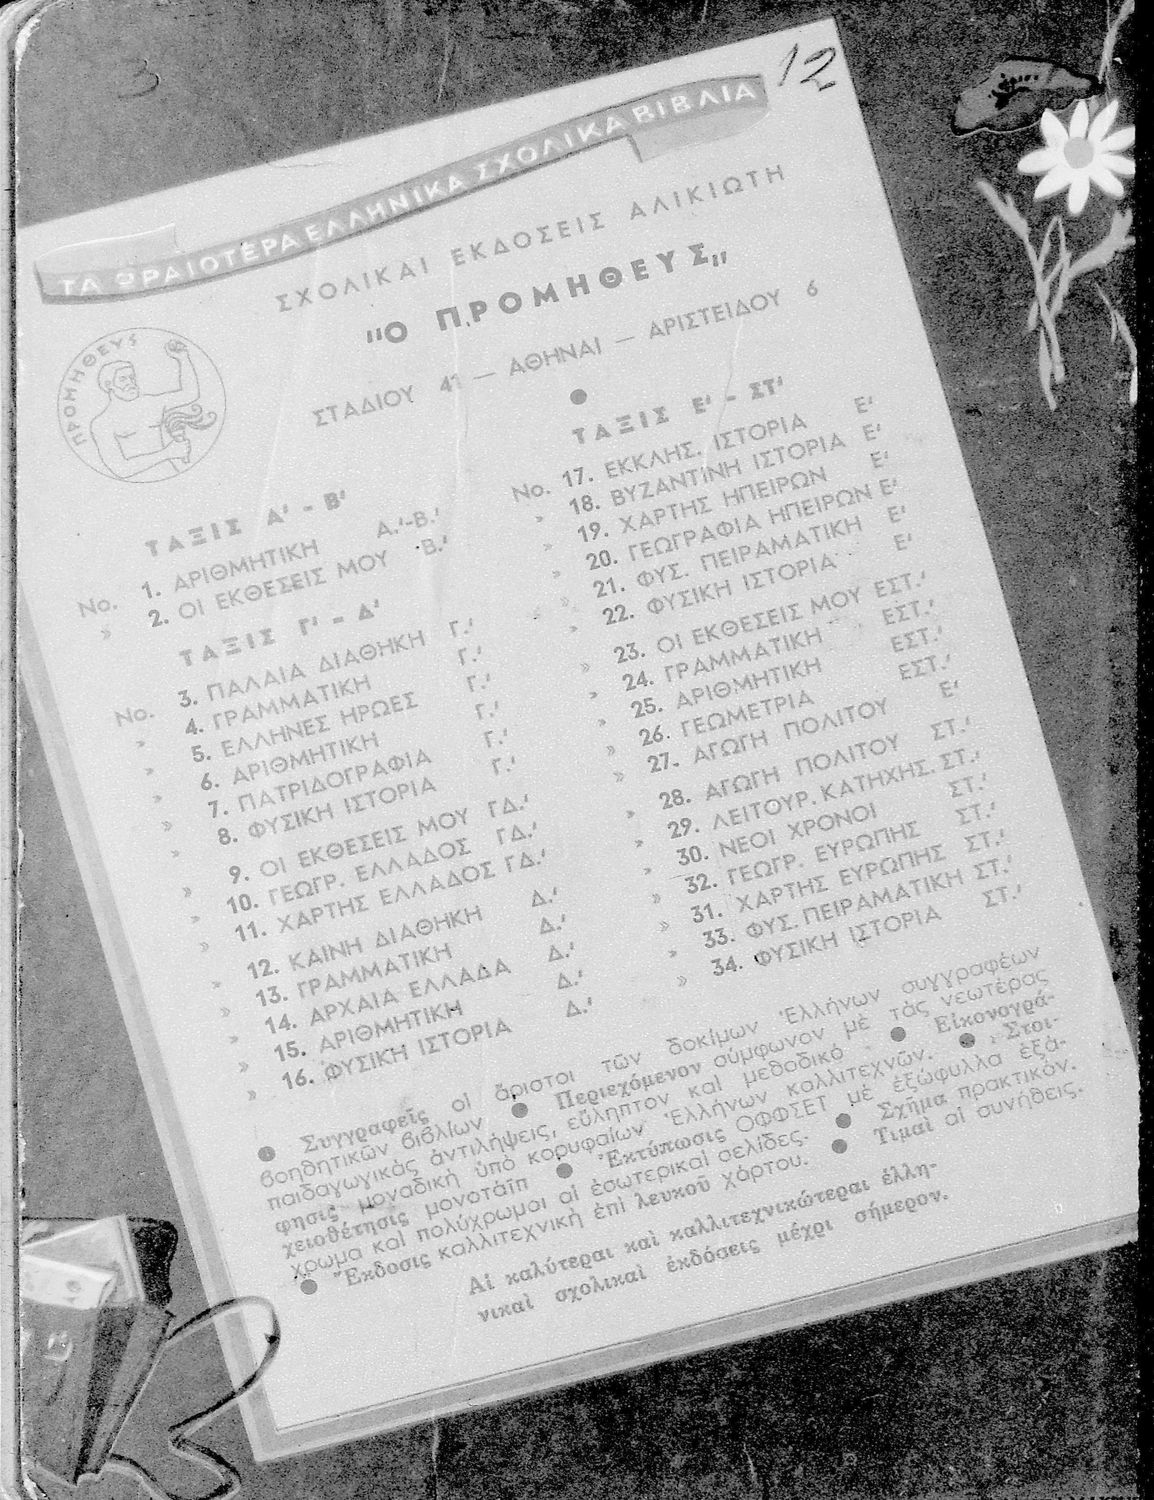 3
12
ΤΑ ΩΡΑΙΟΤΕΡΑ ΕΛΛΗΝΙΚΑ ΣΧΟΛΙΚΑ ΒΙΒΛΙΑ
ΣΧΟΛΙΚΑΙ ΕΚΔΟΣΕΙΣ ΑΛΙΚΙΩΤΗ
"Ο ΠΡΟΜΗΘΕΥΣ„
ΣΤΑΔΙΟΥ 41 — ΑΘΗΝΑΙ — ΑΡΙΣΤΕΙΔΟΥ 6
ΠΡΟΜΗΘΕΥΣ
ΤΑΞΙΣ Α' - Β'
No. 1. ΑΡΙΘΜΗΤΙΚΗ Α.'-Β.'
» 2. ΟΙ ΕΚΘΕΣΕΙΣ ΜΟΥ Β.'
ΤΑΞΙΣ Γ' - Δ'
No. 3. ΠΑΛΑΙΑ ΔΙΑΘΗΚΗ Γ.'
» 4. ΓΡΑΜΜΑΤΙΚΗ Γ.'
» 5. ΕΛΛΗΝΕΣ ΗΡΩΕΣ Γ.'
» 6. ΑΡΙΘΜΗΤΙΚΗ Γ.'
» 7. ΠΑΤΡΙΔΟΓΡΑΦΙΑ Γ.'
» 8. ΦΥΣΙΚΗ ΙΣΤΟΡΙΑ Γ.'
» 9. ΟΙ ΕΚΘΕΣΕΙΣ ΜΟΥ ΓΔ.'
» 10. ΓΕΩΓΡ. ΕΛΛΑΔΟΣ ΓΔ.'
» 11. ΧΑΡΤΗΣ ΕΛΛΑΔΟΣ ΓΔ.'
» 12. ΚΑΙΝΗ ΔΙΑΘΗΚΗ Δ.'
» 13. ΓΡΑΜΜΑΤΙΚΗ Δ.'
» 14. ΑΡΧΑΙΑ ΕΛΛΑΔΑ Δ.'
» 15. ΑΡΙΘΜΗΤΙΚΗ Δ.'
» 16. ΦΥΣΙΚΗ ΙΣΤΟΡΙΑ Δ.'
ΤΑΞΙΣ Ε' - ΣΤ'
No. 17. ΕΚΚΛΗΣ. ΙΣΤΟΡΙΑ Ε'
» 18. ΒΥΖΑΝΤΙΝΗ ΙΣΤΟΡΙΑ Ε'
» 19. ΧΑΡΤΗΣ ΗΠΕΙΡΩΝ Ε'
» 20. ΓΕΩΓΡΑΦΙΑ ΗΠΕΙΡΩΝ Ε'
» 21. ΦΥΣ. ΠΕΙΡΑΜΑΤΙΚΗ Ε'
» 22. ΦΥΣΙΚΗ ΙΣΤΟΡΙΑ Ε'
» 23. ΟΙ ΕΚΘΕΣΕΙΣ ΜΟΥ ΕΣΤ.'
» 24. ΓΡΑΜΜΑΤΙΚΗ ΕΣΤ.'
» 25. ΑΡΙΘΜΗΤΙΚΗ ΕΣΤ.'
» 26. ΓΕΩΜΕΤΡΙΑ ΕΣΤ.'
» 27. ΑΓΩΓΗ ΠΟΛΙΤΟΥ Ε'
» 28. ΑΓΩΓΗ ΠΟΛΙΤΟΥ ΣΤ.'
» 29. ΛΕΙΤΟΥΡ. ΚΑΤΗΧΗΣ. ΣΤ.'
» 30. ΝΕΟΙ ΧΡΟΝΟΙ ΣΤ.'
» 32. ΓΕΩΓΡ. ΕΥΡΩΠΗΣ ΣΤ.'
» 31. ΧΑΡΤΗΣ ΕΥΡΩΠΗΣ ΣΤ.'
» 33. ΦΥΣ. ΠΕΙΡΑΜΑΤΙΚΗ ΣΤ.'
» 34. ΦΥΣΙΚΗ ΙΣΤΟΡΙΑ ΣΤ.'
● Συγγραφεῖς οἱ ἄριστοι τῶν δοκίμων Ἑλλήνων συγγραφέων
βοηθητικῶν βιβλίων ● Περιεχόμενον σύμφωνον μὲ τὰς νεωτέρας
παιδαγωγικὰς ἀντιλήψεις, εὔληπτον καὶ μεθοδικό ● Εἰκονογρά-
φησις μοναδικὴ ὑπὸ κορυφαίων Ἑλλήνων καλλιτεχνῶν. ● Στοι-
χειοθέτησις μονοτάϊπ ● Ἐκτύπωσις ΟΦΦΣΕΤ μὲ ἐξώφυλλα ἑξά-
χρωμα καὶ πολύχρωμοι αἱ ἐσωτερικαὶ σελίδες. ● Σχῆμα πρακτικόν.
● Ἔκδοσις καλλιτεχνικὴ ἐπὶ λευκοῦ χάρτου. ● Τιμαὶ αἱ συνήθεις.
Αἱ καλύτεραι καὶ καλλιτεχνικώτεραι ἑλλη-
νικαὶ σχολικαὶ ἐκδόσεις μέχρι σήμερον.